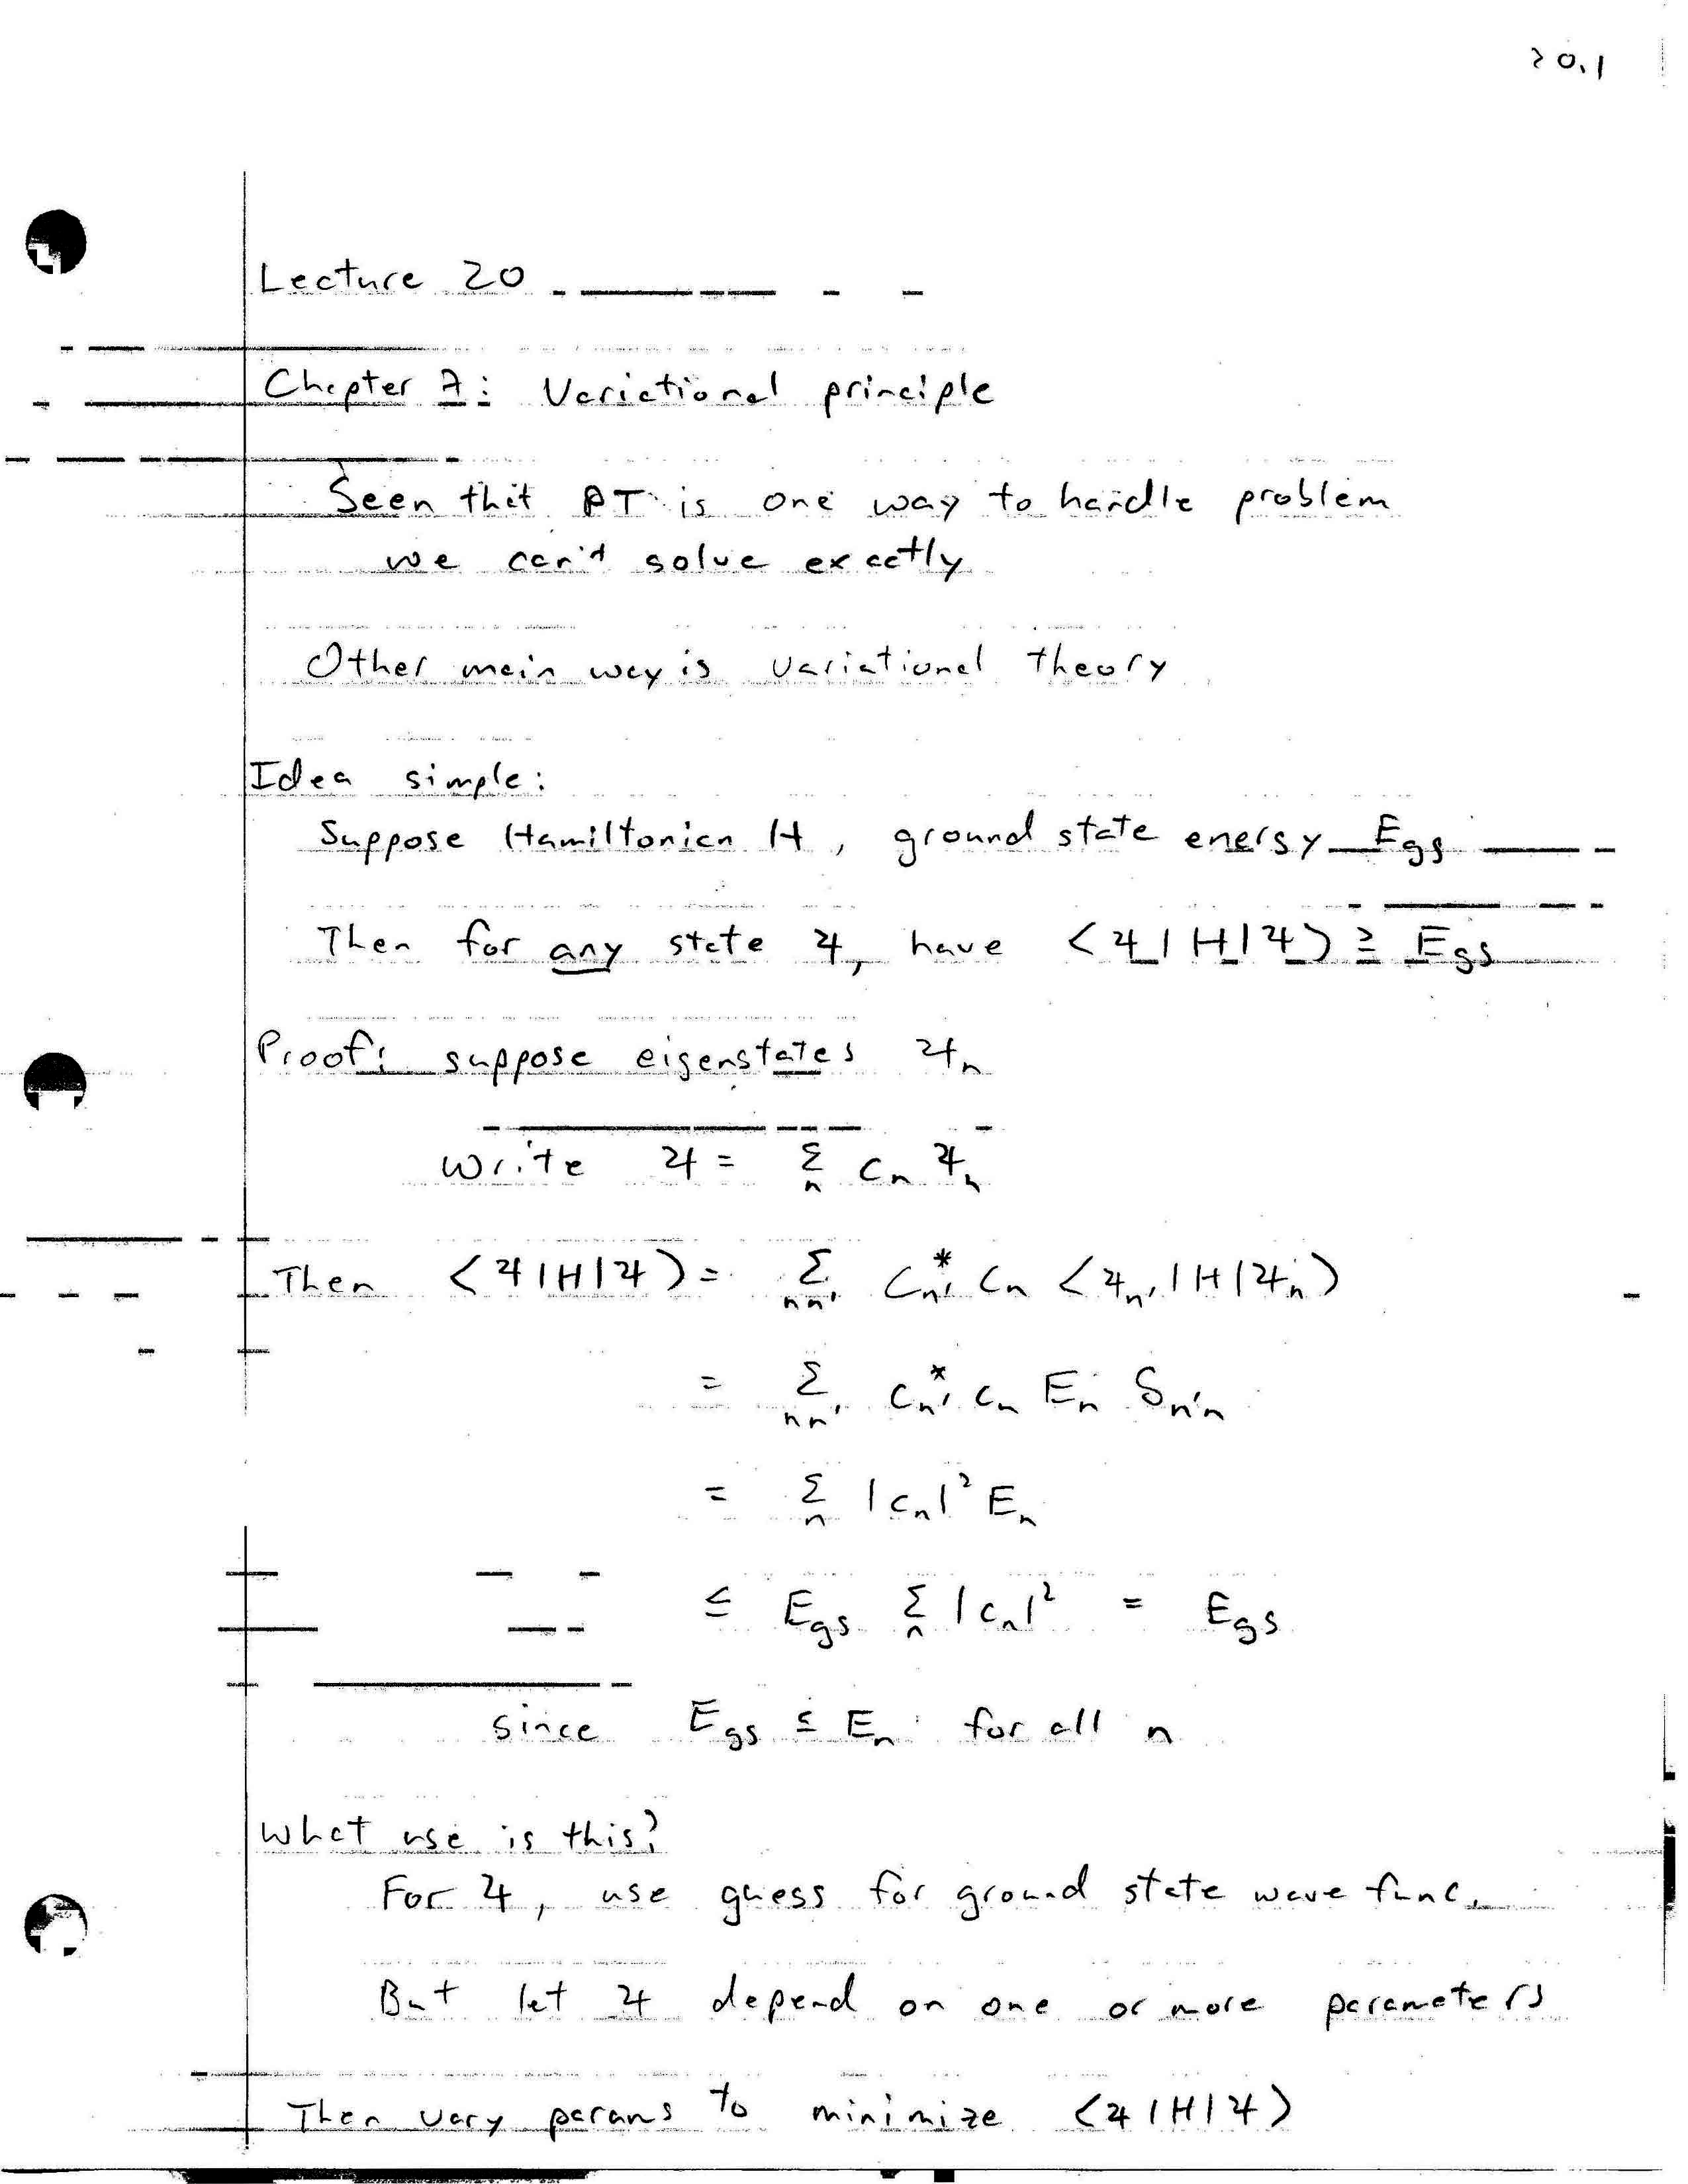 20.1
Lecture 20
Chapter 7: Variational principle
Seen that PT is one way to handle problem
we can't solve exactly
Other main way is variational theory
Idea simple:
Suppose Hamiltonian H, ground state energy Egs
Then for any state ψ, have ⟨ψ|H|ψ⟩ ≥ Egs
Proof: suppose eigenstates ψ_n
Write ψ = Σ_n c_n ψ_n
Then ⟨ψ|H|ψ⟩ = Σ_nn' c_n'^* c_n ⟨ψ_n'|H|ψ_n⟩
= Σ_nn' c_n'^* c_n E_n δ_n'n
= Σ_n |c_n|² E_n
≤ Egs Σ_n |c_n|² = Egs
since Egs ≤ E_n for all n
What use is this?
For ψ, use guess for ground state wave func.
But let ψ depend on one or more parameters
Then vary params to minimize ⟨ψ|H|ψ⟩